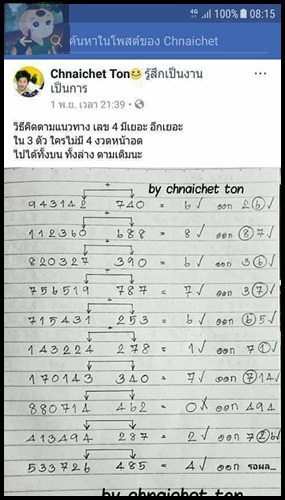 4G 100% 08:15
ค้นหาในโพสต์ของ Chnaichet
Chnaichet Ton😊 รู้สึกเป็นงาน
เป็นการ
1 พ.ย. เวลา 21:39 •
วิธีคิดตามแนวทาง เลข 4 มีเยอะ อีกเยอะ
ใน 3 ตัว ใครไม่มี 4 งวดหน้าอด
ไปได้ทั้งบน ทั้งล่าง ตามเดิมนะ
by chnaichet ton
+
943142 740 = 6 ✓ ออก 2 6 ✓
+
112360 688 = 8 ✓ ออก 8 7 ✓
+
820327 390 = 6 ✓ ออก 3 6 ✓
+
756519 787 = 7 ✓ ออก 3 7 ✓
+
715431 253 = 6 ✓ ออก 6 5 ✓
143224 278 = 1 ✓ ออก 7 1 ✓
170143 340 = 7 ✓ ออก 7 1 4 ✓
880714 462 = 0 X ออก 494
413494 287 = 2 ✓ ออก 7 2 6 ✓
533726 485 = 4 ✓ ออก รอผล...
by chnaichet ton